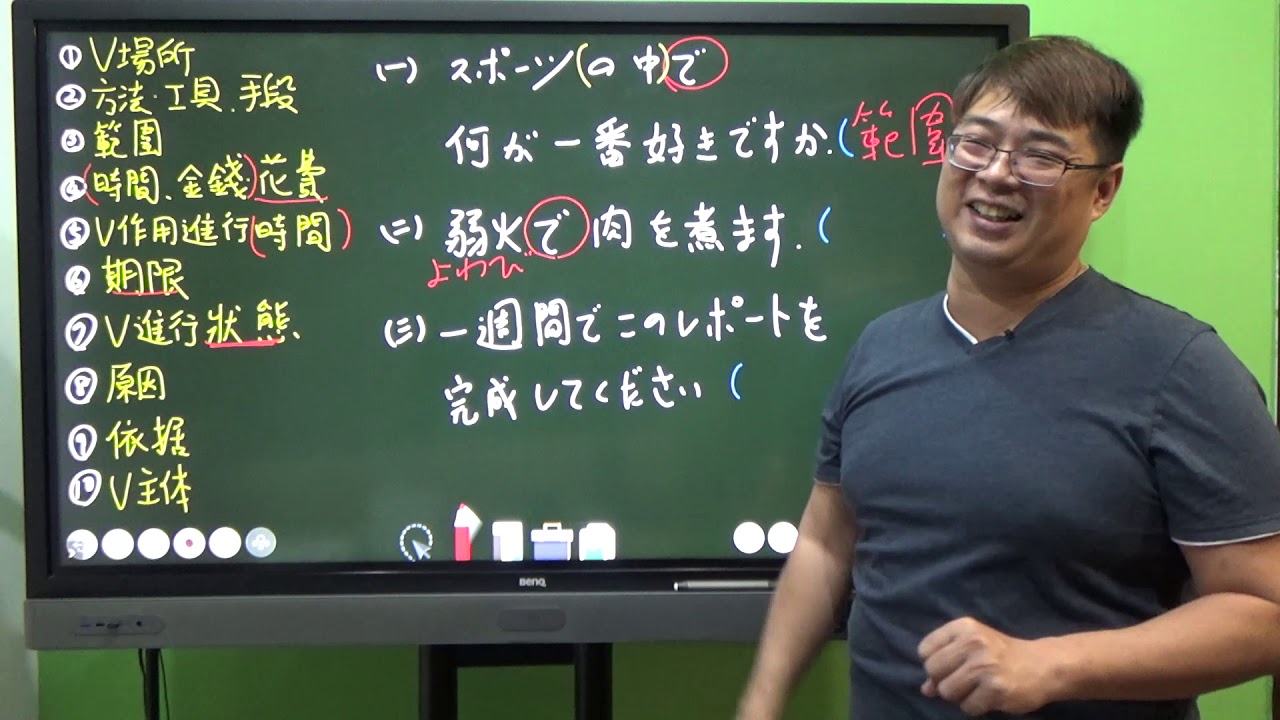 ① V場所
② 方法・工具、手段
③ 範圍
④ (時間、金錢)花費
⑤ V作用進行(時間)
⑥ 期限
⑦ V進行狀態
⑧ 原因
⑨ 依据
⑩ V主体
(一) スポーツ(の中)で
何が一番好きですか.(範圍
(二) 弱火で肉を煮ます.(
よわび
(三) 一週間でこのレポートを
完成してください(
BenQ